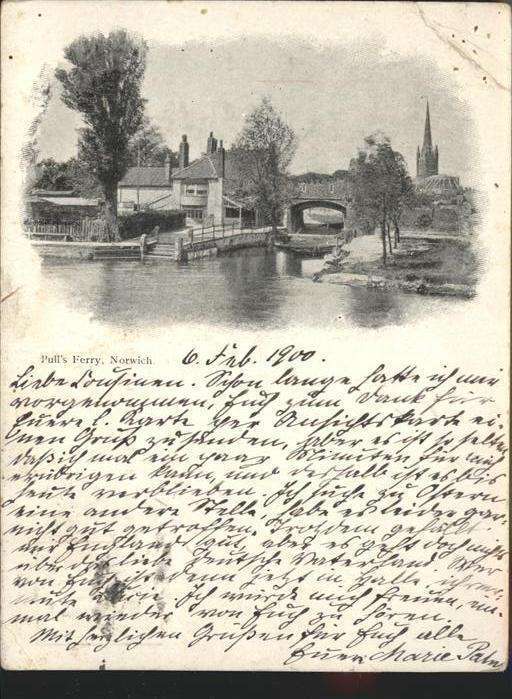 Pull's Ferry, Norwich.
6. Feb. 1900.
Liebe Cousinen. Schon lange hatte ich mir
vorgenommen, Euch zum Dank für
Euere l. Karte per Ansichtskarte ei-
nen Gruß zu senden, aber es ist so selten
daß ich mal ein paar Minuten für
erübrigen kann, und deshalb ist es bis
heute verblieben. Ich suche zu Ostern
eine andere Stelle, habe es leider gar
nicht gut getroffen. Trotzdem gefällt
mir England gut, aber es geht doch nichts
über das liebe Deutsche Vaterland. Wer
von Euch ist denn jetzt in Halle,
Ich würde mich freuen, ein-
mal wieder von Euch zu hören.
Mit herzlichen Grüßen für Euch alle
Euere Marie